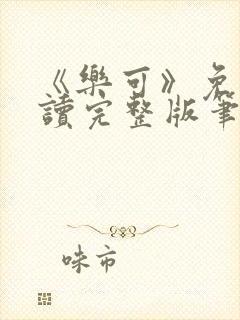 《樂可》免
讀完整版筆
味市